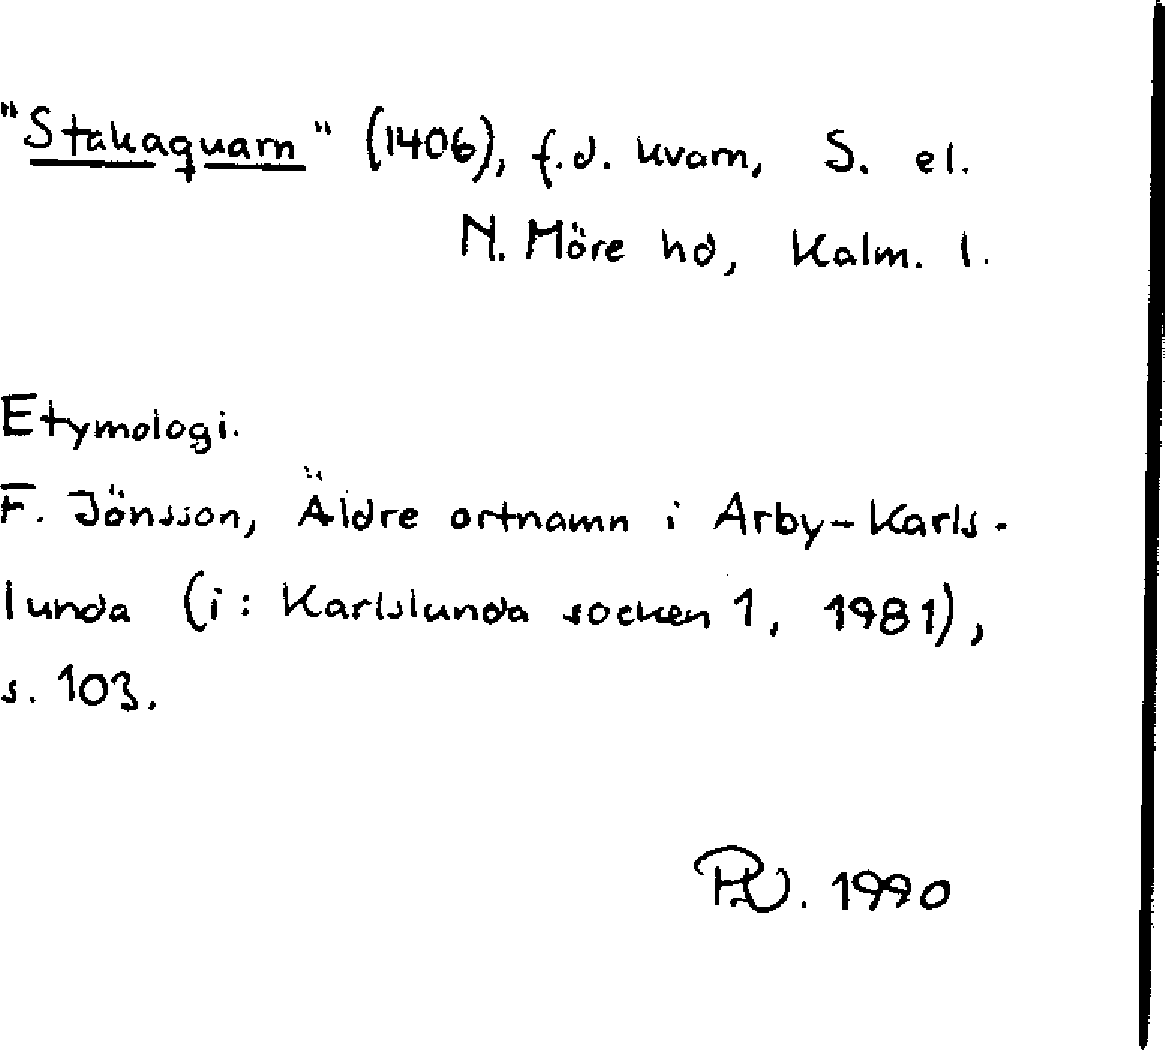 "Stakaquarn" (1406), f.d. kvarn, S. el.
N. Möre hd, Kalm. l.
Etymologi.
F. Jönsson, Äldre ortnamn i Arby-Karls-
lunda (i: Karlslunda socken 1, 1981),
s. 103.
1990